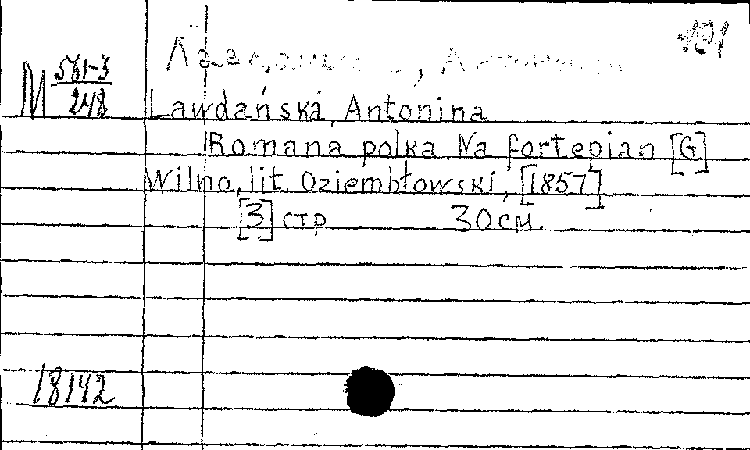 M 561-3/248
Lawdańska, Antonina
Romana polka Na fortepian [G]
Wilno, lit. Oziembłowski, [1857]
[3] стр 30 см.
18142